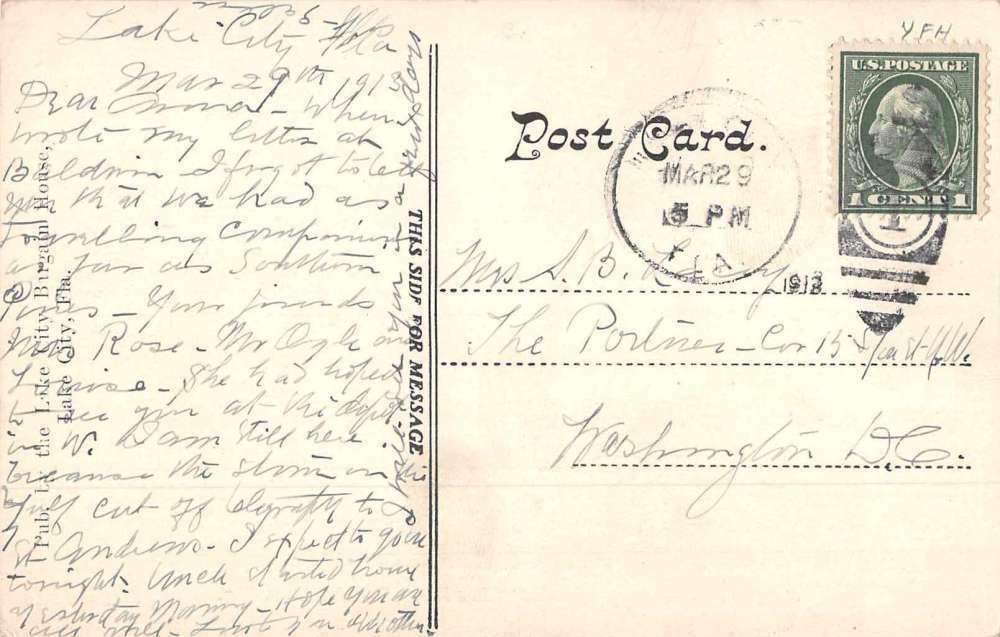 Lake City Fla
Mar 29th 1913
Dear Emma - When I
wrote my letter at
Baldwin I forgot to tell
you that we had as a
travelling companion
as far as Southern
Pines - Your friends
Mrs Rose - Mr Ogle and
Louise - She had hoped
to see you at the depot
in W. I am still here
because the storm on the
gulf cut off telegraph to
St Andrews - I expect to go on
tonight. Uncle started home
yesterday Morning - Hope you are
all well - Love to you
will see you in a
days
Pub. by the Lake City Bargain House,
Lake City, Fla.
THIS SIDE FOR MESSAGE
Post Card.
YFH
U.S. POSTAGE
1 CENT 1
MAR 29
5 PM
FLA
1913
1
Mrs S. B. Lacey
The Portner - Cor 15 St N.W.
Washington D.C.